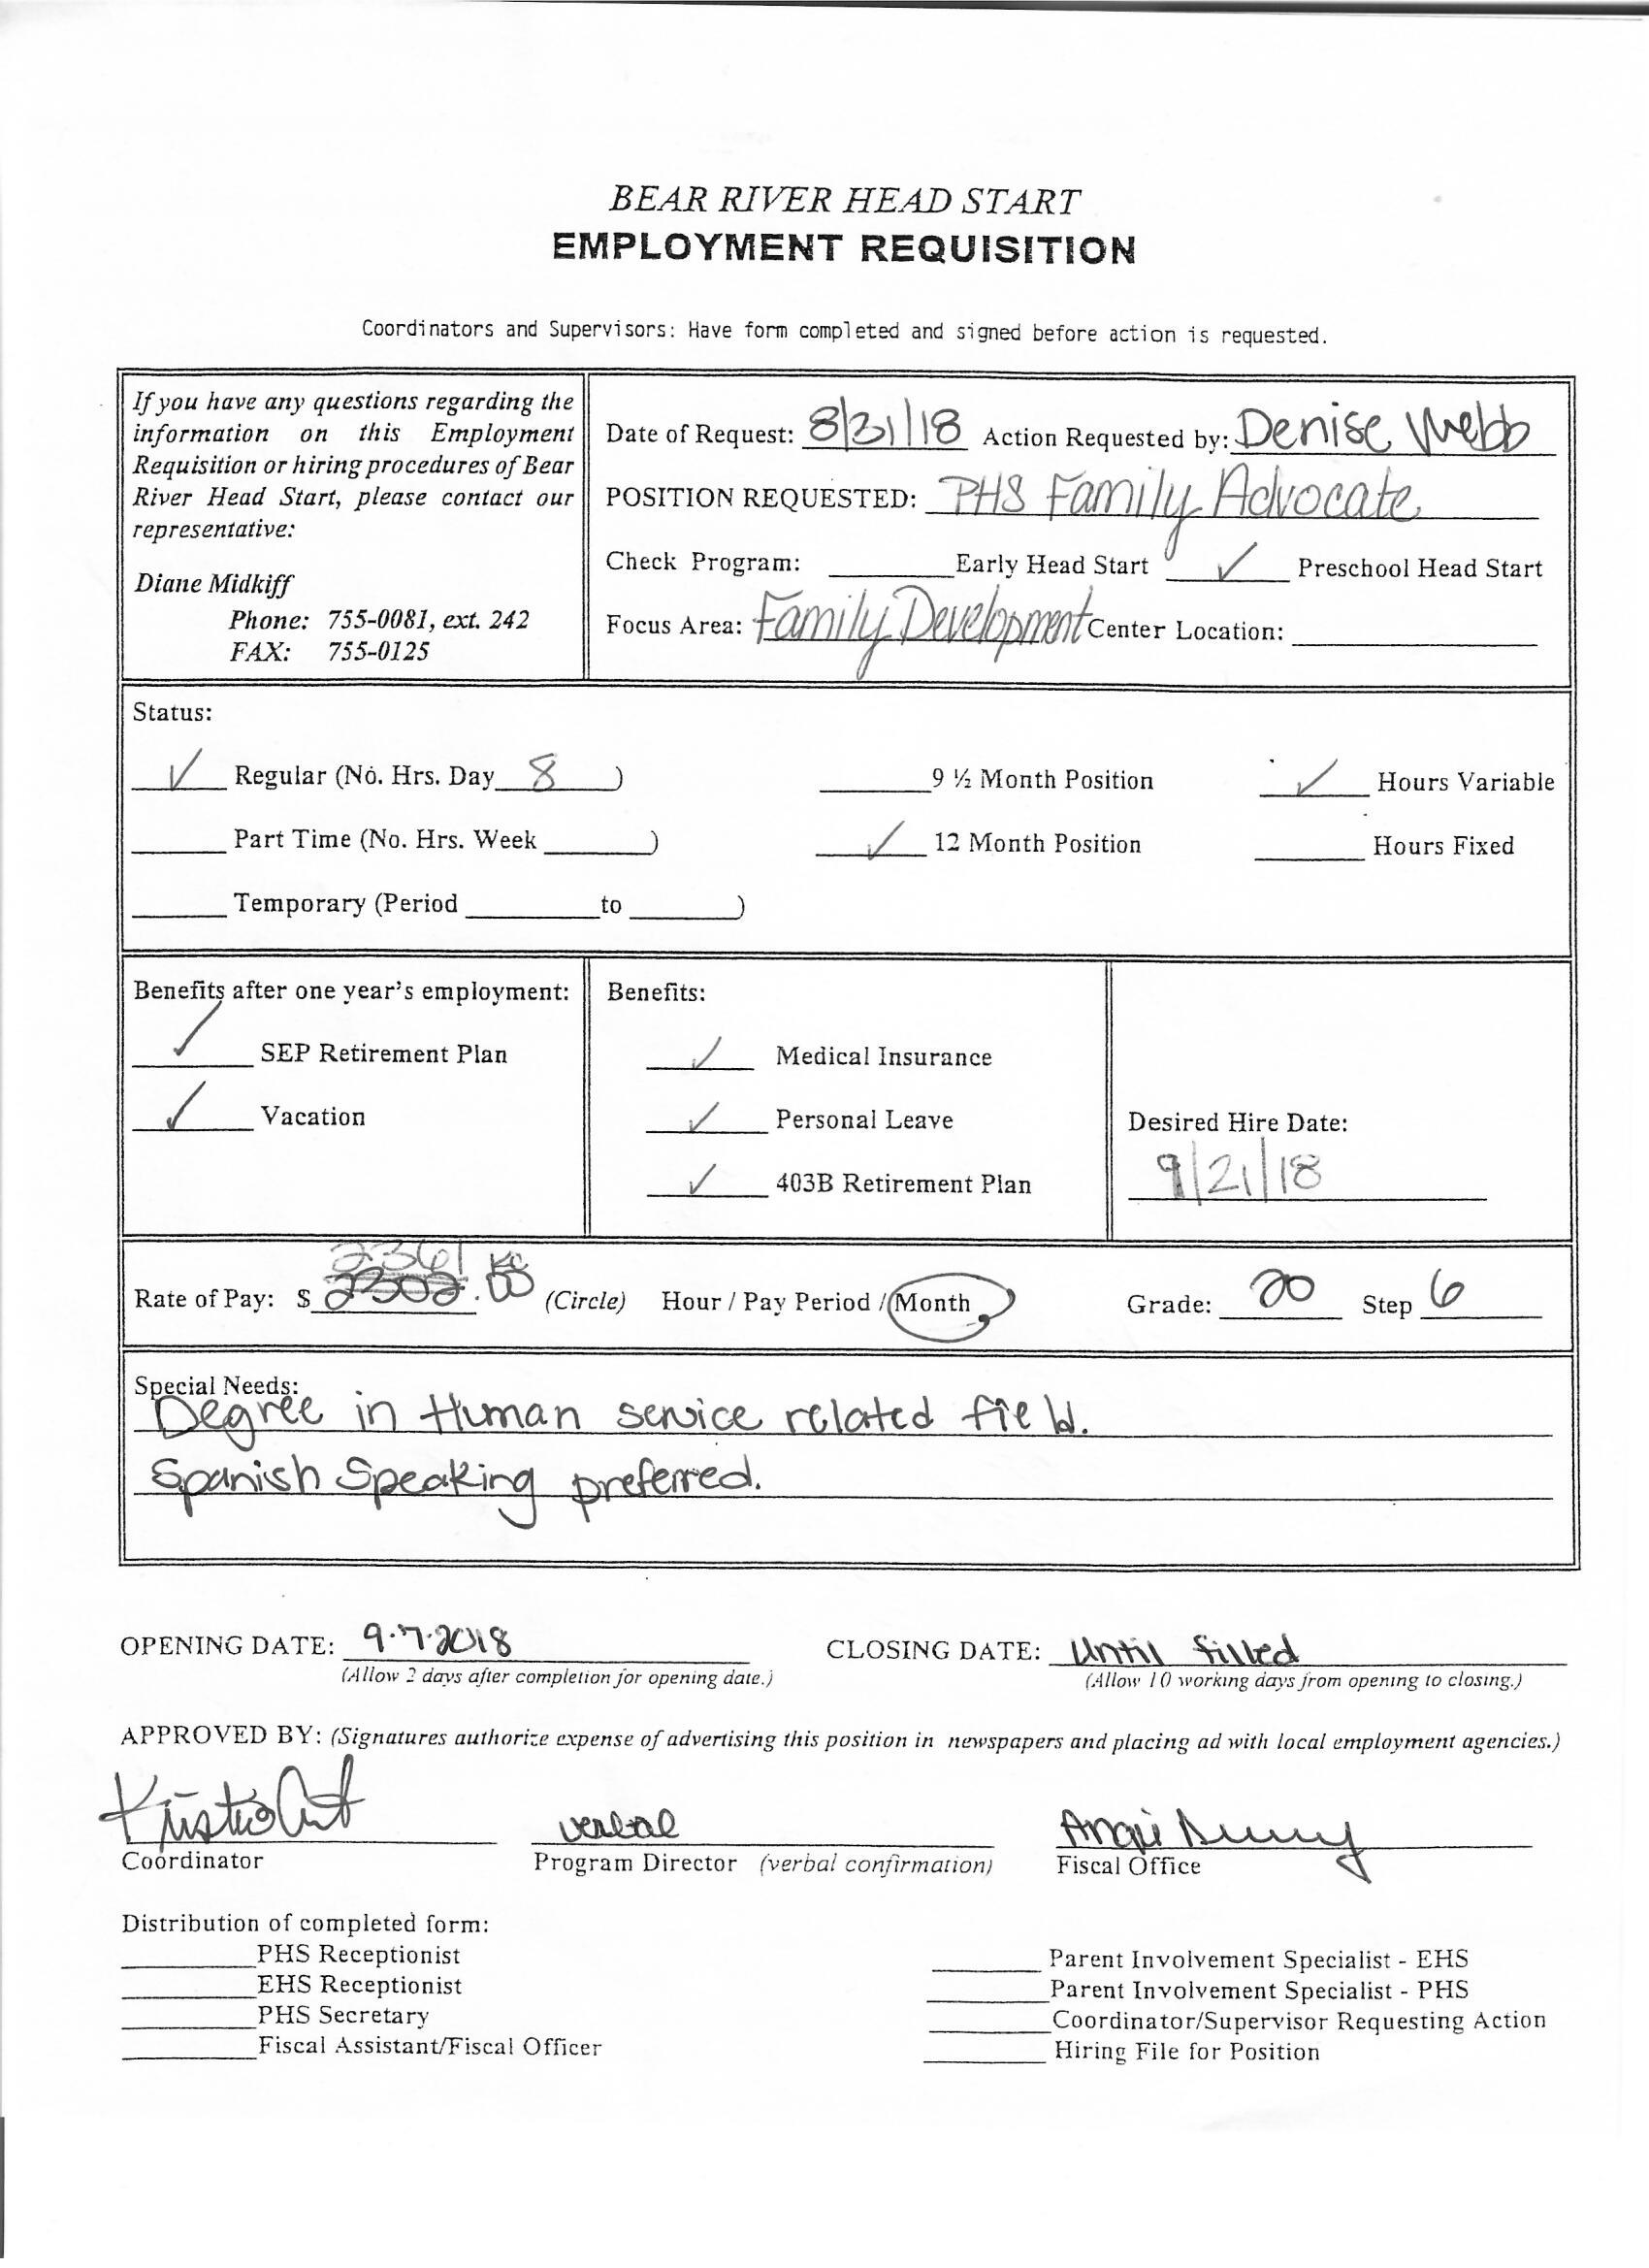 BEAR RIVER HEAD START
EMPLOYMENT REQUISITION
Coordinators and Supervisors: Have form completed and signed before action is requested.
If you have any questions regarding the
information on this Employment
Requisition or hiring procedures of Bear
River Head Start, please contact our
representative:
Diane Midkiff
Phone: 755-0081, ext. 242
FAX: 755-0125
Date of Request: 8/31/18 Action Requested by: Denise Webb
POSITION REQUESTED: PHS Family Advocate
Check Program: ____ Early Head Start ✓ Preschool Head Start
Focus Area: Family Development Center Location: ____
Status:
✓ Regular (No. Hrs. Day 8 ) ____ 9 ½ Month Position ✓ Hours Variable
____ Part Time (No. Hrs. Week ____) ✓ 12 Month Position ____ Hours Fixed
____ Temporary (Period ____ to ____)
Benefits after one year's employment:
✓ SEP Retirement Plan
✓ Vacation
Benefits:
✓ Medical Insurance
✓ Personal Leave
✓ 403B Retirement Plan
Desired Hire Date:
9/21/18
2361 KC
Rate of Pay: $ 2302.00 (Circle) Hour / Pay Period / Month Grade: 20 Step 6
Special Needs:
Degree in Human service related field.
Spanish Speaking preferred.
OPENING DATE: 9.7.2018 CLOSING DATE: Until filled
(Allow 2 days after completion for opening date.) (Allow 10 working days from opening to closing.)
APPROVED BY: (Signatures authorize expense of advertising this position in newspapers and placing ad with local employment agencies.)
verbal Angie
Coordinator Program Director (verbal confirmation) Fiscal Office
Distribution of completed form:
____ PHS Receptionist
____ EHS Receptionist
____ PHS Secretary
____ Fiscal Assistant/Fiscal Officer
____ Parent Involvement Specialist - EHS
____ Parent Involvement Specialist - PHS
____ Coordinator/Supervisor Requesting Action
____ Hiring File for Position